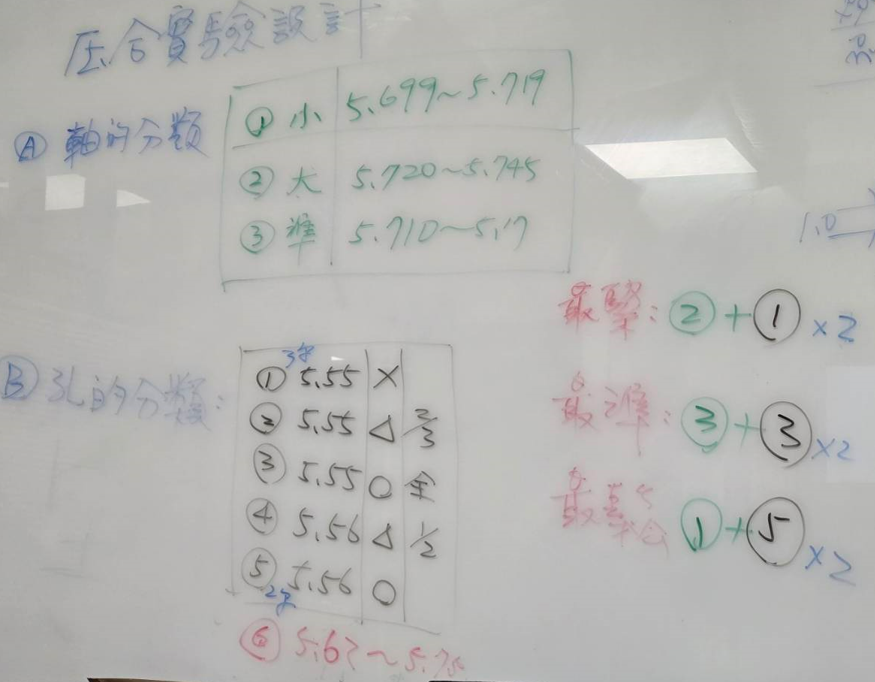 压合實驗設計
Ⓐ 軸的分類
① 小 5.699~5.719
② 大 5.720~5.745
③ 準 5.710~5.17
Ⓑ 孔的分類:
① 5.55 ×
② 5.55 △ 2/3
③ 5.55 ○ 全
④ 5.56 △ 1/2
⑤ 5.56 ○
⑥ 5.67~5.75
最緊: ②+① ×2
最準: ③+③ ×2
最鬆 ①+⑤ ×2
1.0